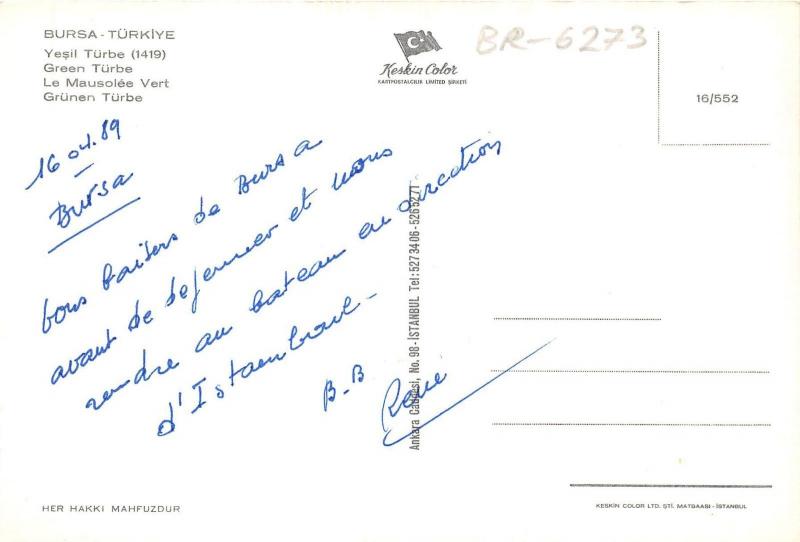 BURSA - TÜRKİYE
Yeşil Türbe (1419)
Green Türbe
Le Mausolée Vert
Grünen Türbe
Keskin Color
KARTPOSTALCILIK LIMITED ŞİRKETİ
BR-6273
16/552
16 04.89
Bursa
bons baisers de Bursa
avant de dejeuner et nous
rendre au bateau en direction
d'Istamboul-
B.B
Rene
Ankara Caddesi, No. 98-İSTANBUL Tel:5273406-5265271
HER HAKKI MAHFUZDUR
KESKİN COLOR LTD. ŞTİ. MATBAASI - İSTANBUL